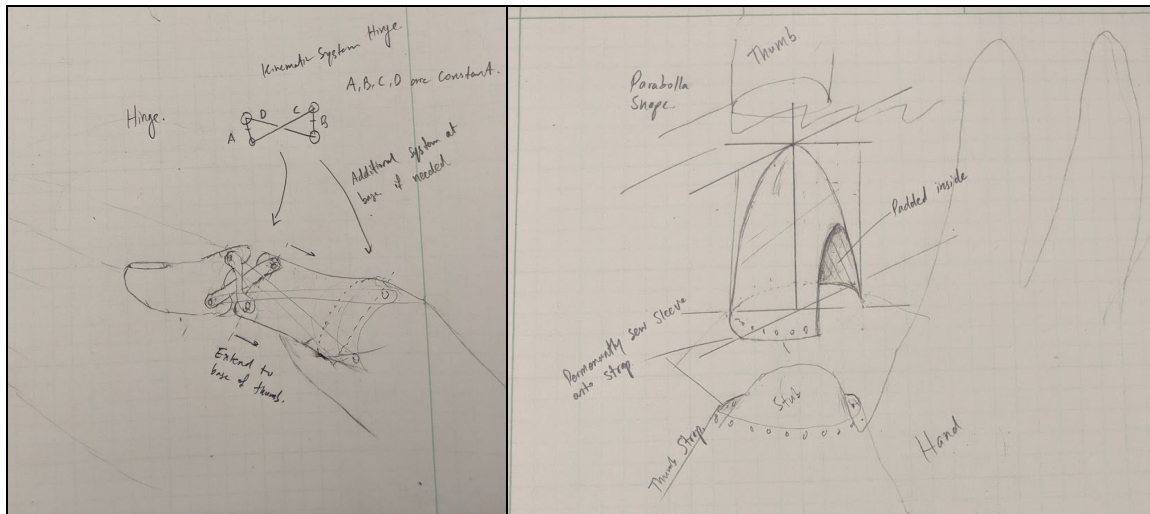 Kinematic System Hinge.
A, B, C, D are constant.
Hinge.
D C
A B
Additional system at
base if needed.
Extend to
base of thumb.
Thumb
Parabolla
Shape.
Padded inside
Permanantly sew sleeve
onto strap.
Stub
Thumb Strap.
Hand